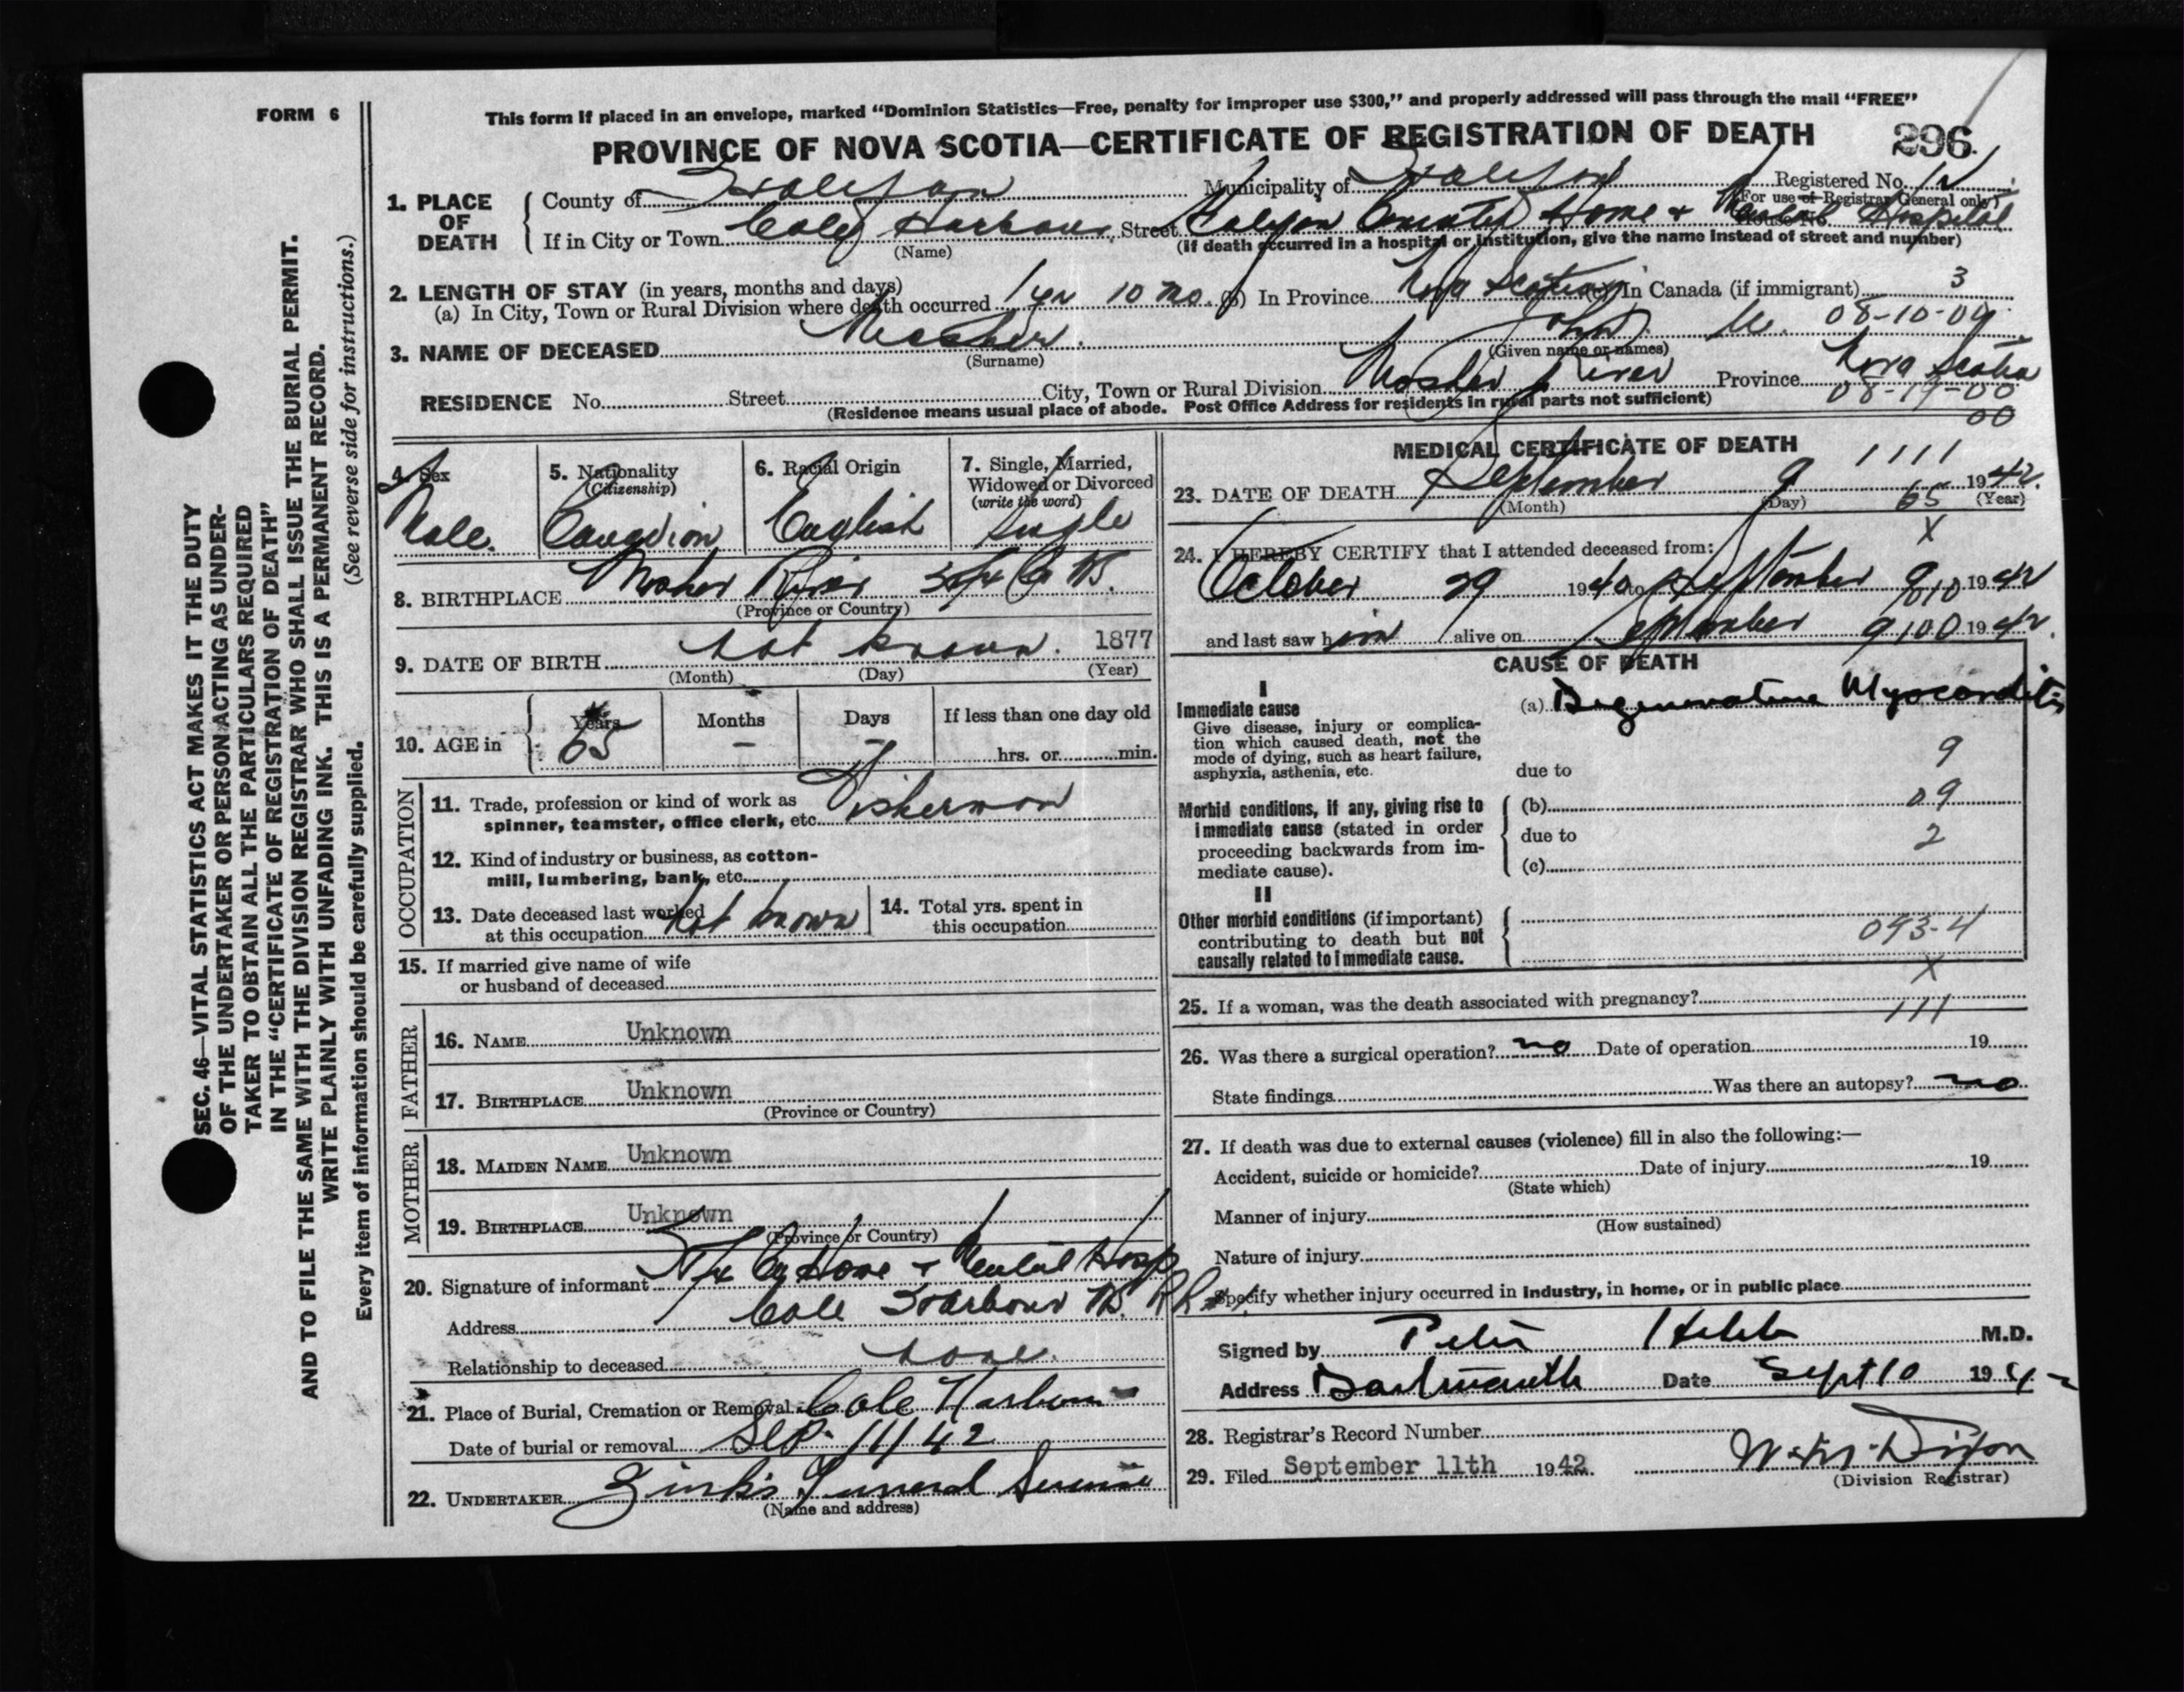 FORM 6
This form if placed in an envelope, marked “Dominion Statistics—Free, penalty for improper use $300,” and properly addressed will pass through the mail “FREE”
PROVINCE OF NOVA SCOTIA—CERTIFICATE OF REGISTRATION OF DEATH 296
1. PLACE OF DEATH { County of Halifax Municipality of Halifax Registered No.
(For use of Registrar General only)
If in City or Town Cole Harbour Street Halifax County Home + Mental Hospital House No.
(Name) (If death occurred in a hospital or institution, give the name instead of street and number)
2. LENGTH OF STAY (in years, months and days)
(a) In City, Town or Rural Division where death occurred 1 yr 10 mo. (b) In Province Nova Scotia (c) In Canada (if immigrant) 3
08-10-09
3. NAME OF DECEASED Mosher. John M.
(Surname) (Given name or names)
RESIDENCE No. Street City, Town or Rural Division Mosher River Province Nova Scotia
(Residence means usual place of abode. Post Office Address for residents in rural parts not sufficient) 08-17-00
00
4. Sex Male.
5. Nationality (Citizenship) Canadian
6. Racial Origin English
7. Single, Married, Widowed or Divorced (write the word) Single
8. BIRTHPLACE Mosher River Hfx Co NS.
(Province or Country)
9. DATE OF BIRTH not known. 1877
(Month) (Day) (Year)
10. AGE in { Years 65 Months — Days — If less than one day old hrs. or min.
OCCUPATION
11. Trade, profession or kind of work as spinner, teamster, office clerk, etc. Fisherman
12. Kind of industry or business, as cotton-mill, lumbering, bank, etc.
13. Date deceased last worked at this occupation not known
14. Total yrs. spent in this occupation
15. If married give name of wife or husband of deceased
FATHER
16. NAME Unknown
17. BIRTHPLACE Unknown
(Province or Country)
MOTHER
18. MAIDEN NAME Unknown
19. BIRTHPLACE Unknown
(Province or Country)
20. Signature of informant Hfx Co Home + Mental Hosp
Address Cole Harbour NS. RR #1
Relationship to deceased none.
21. Place of Burial, Cremation or Removal Cole Harbour
Date of burial or removal Sep. 11/42
22. UNDERTAKER Zink's Funeral Service
(Name and address)
MEDICAL CERTIFICATE OF DEATH
1111
23. DATE OF DEATH September 9 1942.
(Month) (Day) (Year)
65
X
24. I HEREBY CERTIFY that I attended deceased from:
October 29 1940 to September 9 1942
010
and last saw him alive on September 9 1942.
100
CAUSE OF DEATH
I
Immediate cause
Give disease, injury or complication which caused death, not the mode of dying, such as heart failure, asphyxia, asthenia, etc.
(a) Degenerative Myocarditis
9
due to
Morbid conditions, if any, giving rise to immediate cause (stated in order proceeding backwards from immediate cause).
(b) 09
due to 2
(c)
II
Other morbid conditions (if important) contributing to death but not causally related to immediate cause.
093-4
X
25. If a woman, was the death associated with pregnancy?
111
26. Was there a surgical operation? no Date of operation 19
State findings Was there an autopsy? no
27. If death was due to external causes (violence) fill in also the following:—
Accident, suicide or homicide? Date of injury 19
(State which)
Manner of injury
(How sustained)
Nature of injury
Specify whether injury occurred in industry, in home, or in public place
Signed by Peter M.D.
Address Dartmouth Date Sept 10 1942
28. Registrar's Record Number
29. Filed September 11th 1942.
(Division Registrar)
SEC. 46—VITAL STATISTICS ACT MAKES IT THE DUTY
OF THE UNDERTAKER OR PERSON ACTING AS UNDER-
TAKER TO OBTAIN ALL THE PARTICULARS REQUIRED
IN THE “CERTIFICATE OF REGISTRATION OF DEATH”
AND TO FILE THE SAME WITH THE DIVISION REGISTRAR WHO SHALL ISSUE THE BURIAL PERMIT.
WRITE PLAINLY WITH UNFADING INK. THIS IS A PERMANENT RECORD.
(See reverse side for instructions.)
Every item of information should be carefully supplied.